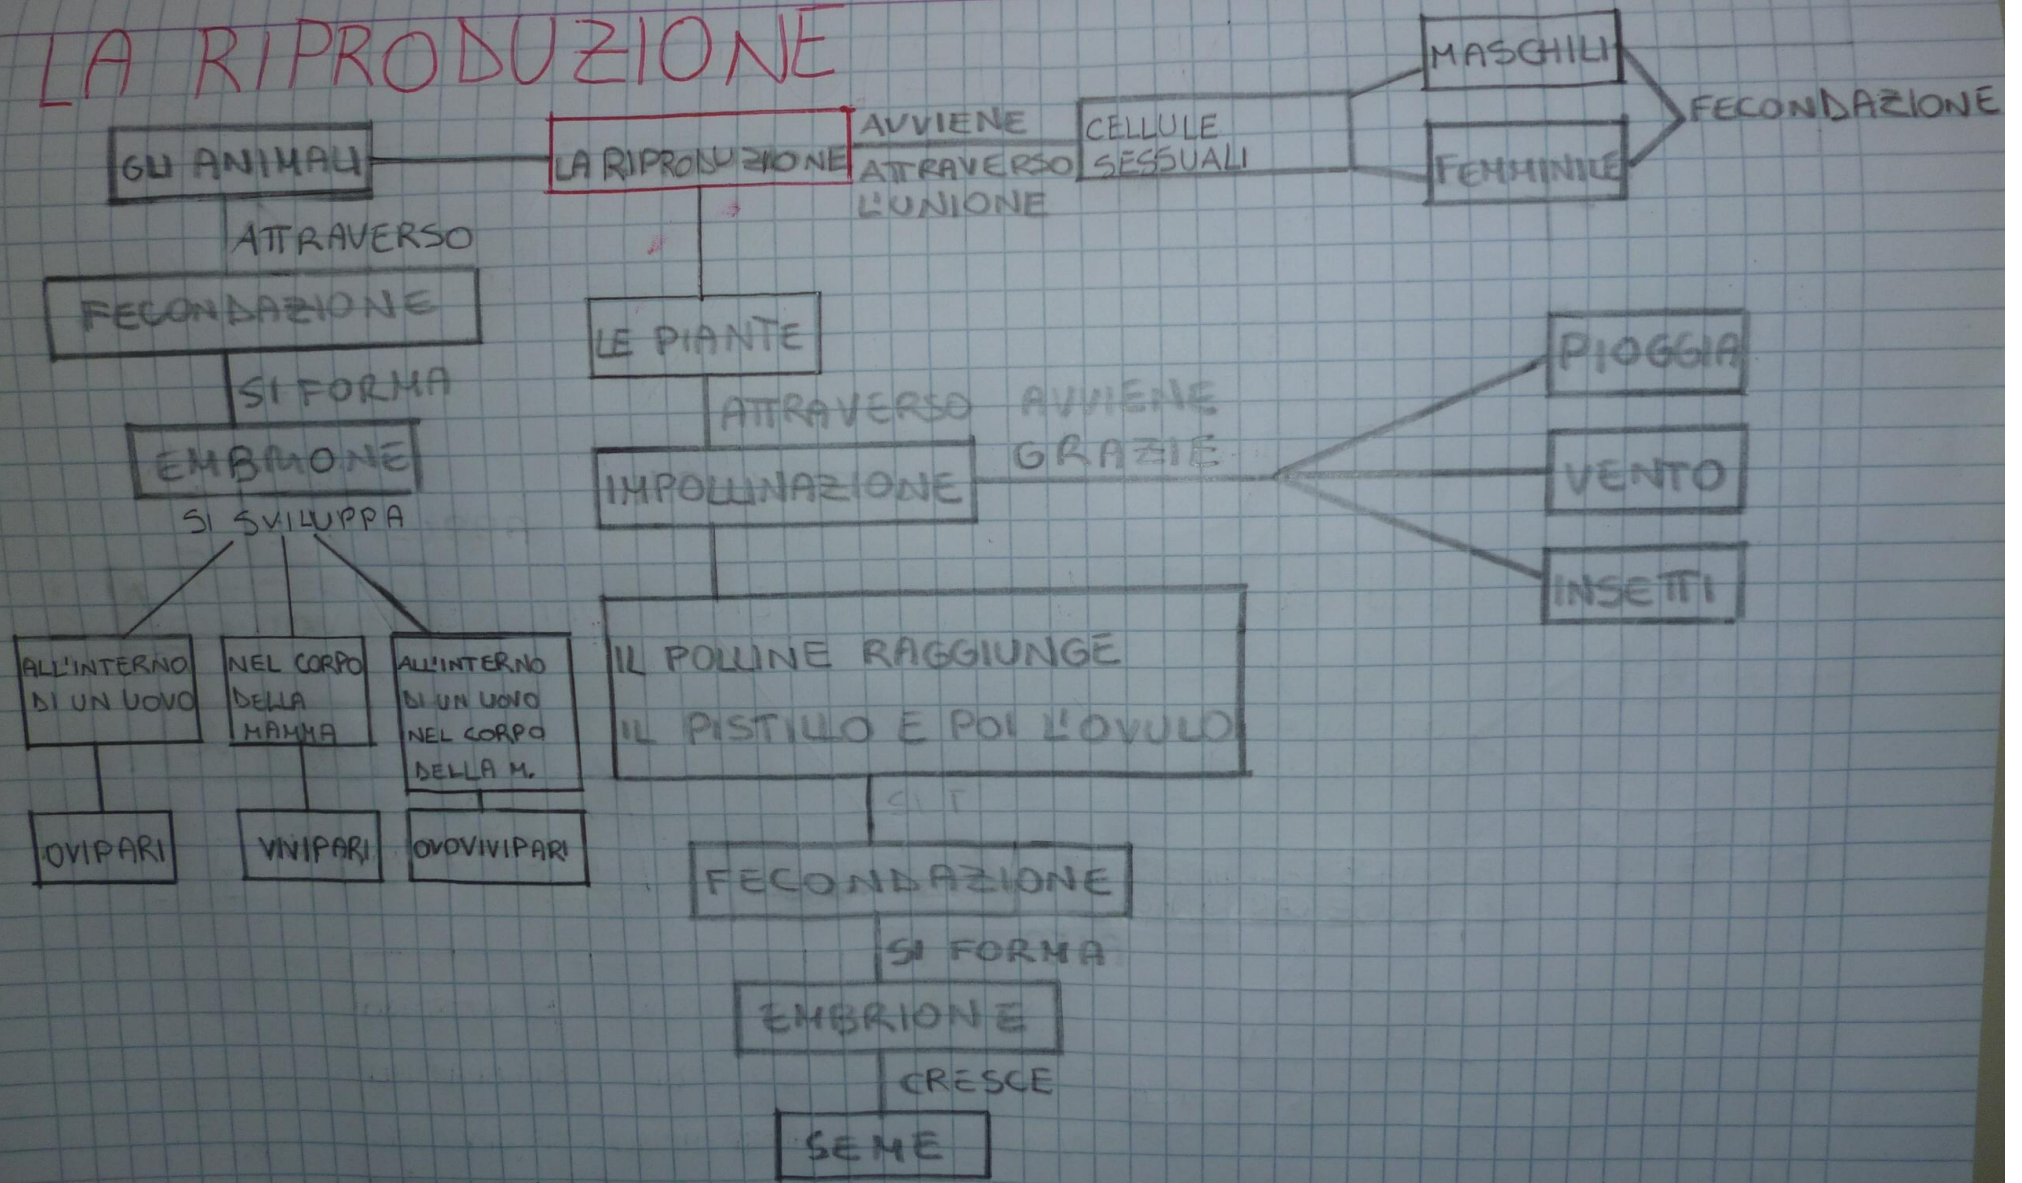 LA RIPRODUZIONE
GLI ANIMALI
LA RIPRODUZIONE
AVVIENE
ATTRAVERSO
L'UNIONE
CELLULE
SESSUALI
MASCHILI
FEMMINILE
FECONDAZIONE
ATTRAVERSO
FECONDAZIONE
SI FORMA
EMBRIONE
SI SVILUPPA
ALL'INTERNO
DI UN UOVO
NEL CORPO
DELLA
MAMMA
ALL'INTERNO
DI UN UOVO
NEL CORPO
DELLA M.
OVIPARI
VIVIPARI
OVOVIVIPARI
LE PIANTE
ATTRAVERSO
IMPOLLINAZIONE
AVVIENE
GRAZIE
PIOGGIA
VENTO
INSETTI
IL POLLINE RAGGIUNGE
IL PISTILLO E POI L'OVULO
FECONDAZIONE
SI FORMA
EMBRIONE
CRESCE
SEME